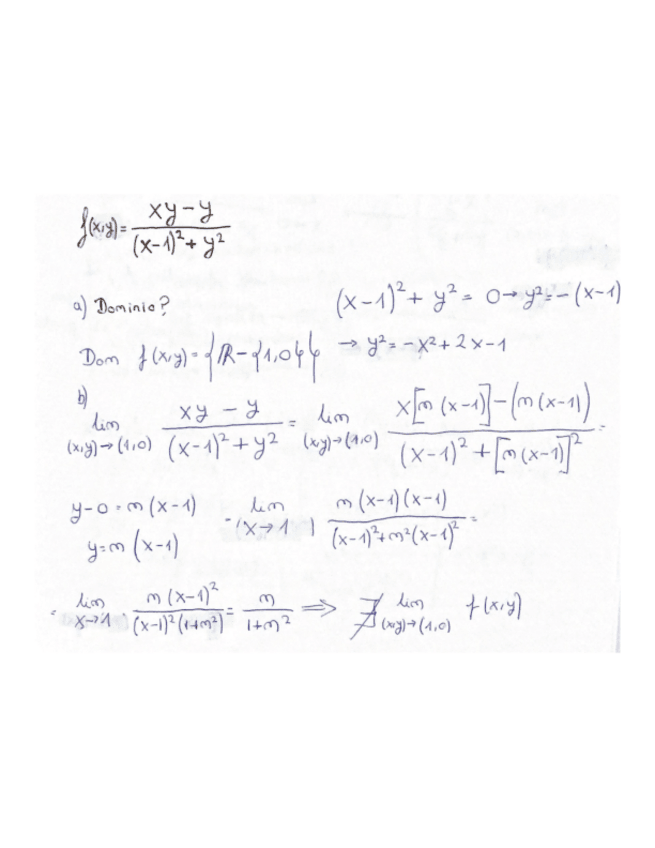 f(x,y) = (xy - y) / ((x-1)² + y²)
a) Dominio?
(x-1)² + y² = 0 → y² = -(x-1)
→ y² = -x² + 2x - 1
Dom f(x,y) = {ℝ - {1,0}}
b)
lim (x,y)→(1,0) (xy - y) / ((x-1)² + y²) = lim (x,y)→(1,0) (x[m(x-1)] - (m(x-1))) / ((x-1)² + [m(x-1)]²) =
y-0 = m(x-1)
y = m(x-1)
= lim (x→1) (m(x-1)(x-1)) / ((x-1)² + m²(x-1)²) =
= lim x→1 (m(x-1)²) / ((x-1)²(1+m²)) = m / (1+m²) ⟹ ∄ lim (x,y)→(1,0) f(x,y)